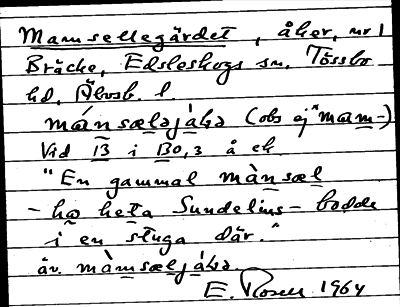 Mamsellegärdet, åker, nr 1
Bräcke, Edsleskogs sn, Tössbo
hd, Älvsb. l.
mánsæləjáḷə (obs ej "mam-)
Vid B i BO, 3 å ek
"En gammal mànsæl
- hə heta Sundelius - bodde
i en stuga där."
äv. màmsæljáḷə
E. Rosen 1964